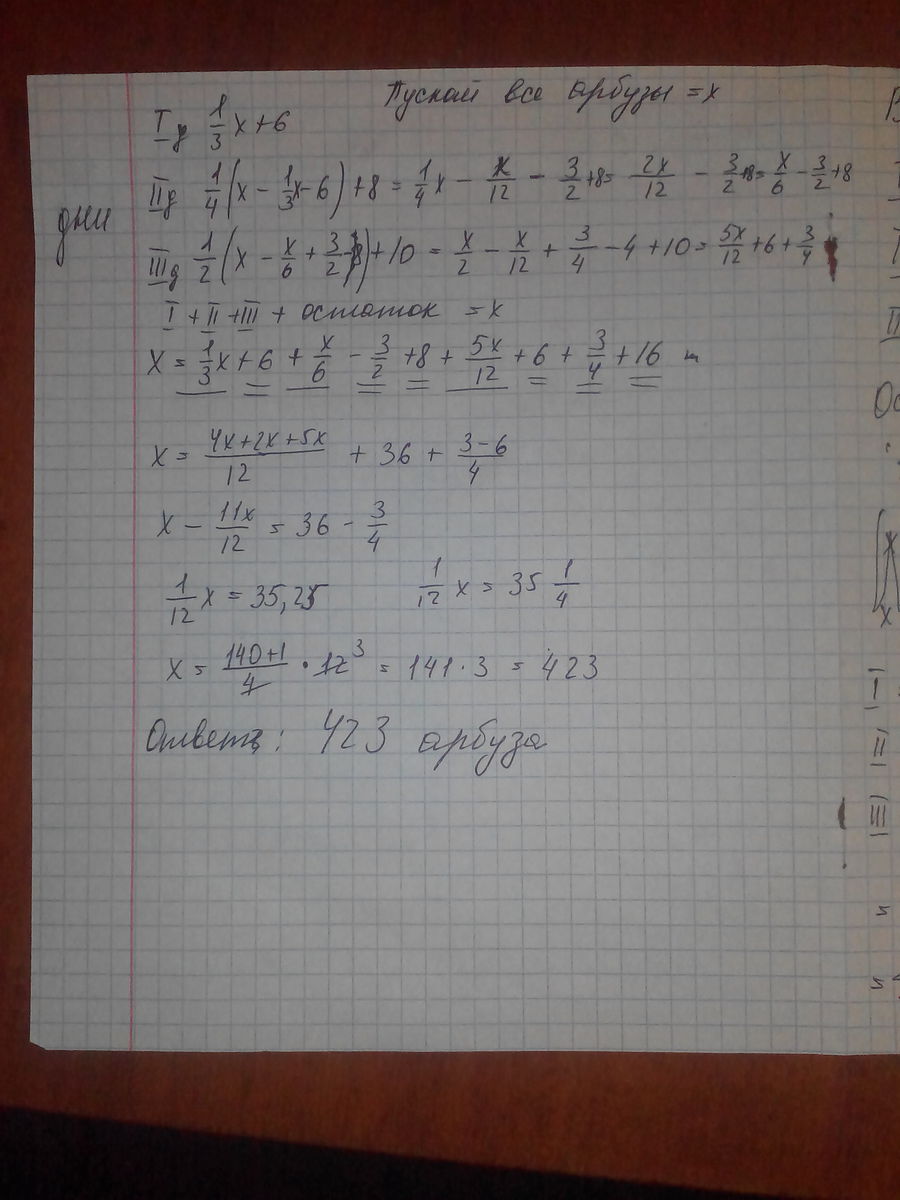 Пускай все арбузы = x
I д 1/3 x + 6
II д 1/4 (x - 1/3 x - 6) + 8 = 1/4 x - x/12 - 3/2 + 8 = 2x/12 - 3/2 + 8 = x/6 - 3/2 + 8
дни
III д 1/2 (x - x/6 + 3/2 - 8) + 10 = x/2 - x/12 + 3/4 - 4 + 10 = 5x/12 + 6 + 3/4
I + II + III + остаток = x
x = 1/3 x + 6 + x/6 - 3/2 + 8 + 5x/12 + 6 + 3/4 + 16
x = (4x + 2x + 5x)/12 + 36 + (3 - 6)/4
x - 11x/12 = 36 - 3/4
1/12 x = 35,25 1/12 x = 35 1/4
x = (140 + 1)/4 · 12 3 = 141 · 3 = 423
Ответ: 423 арбуза
I
II
III